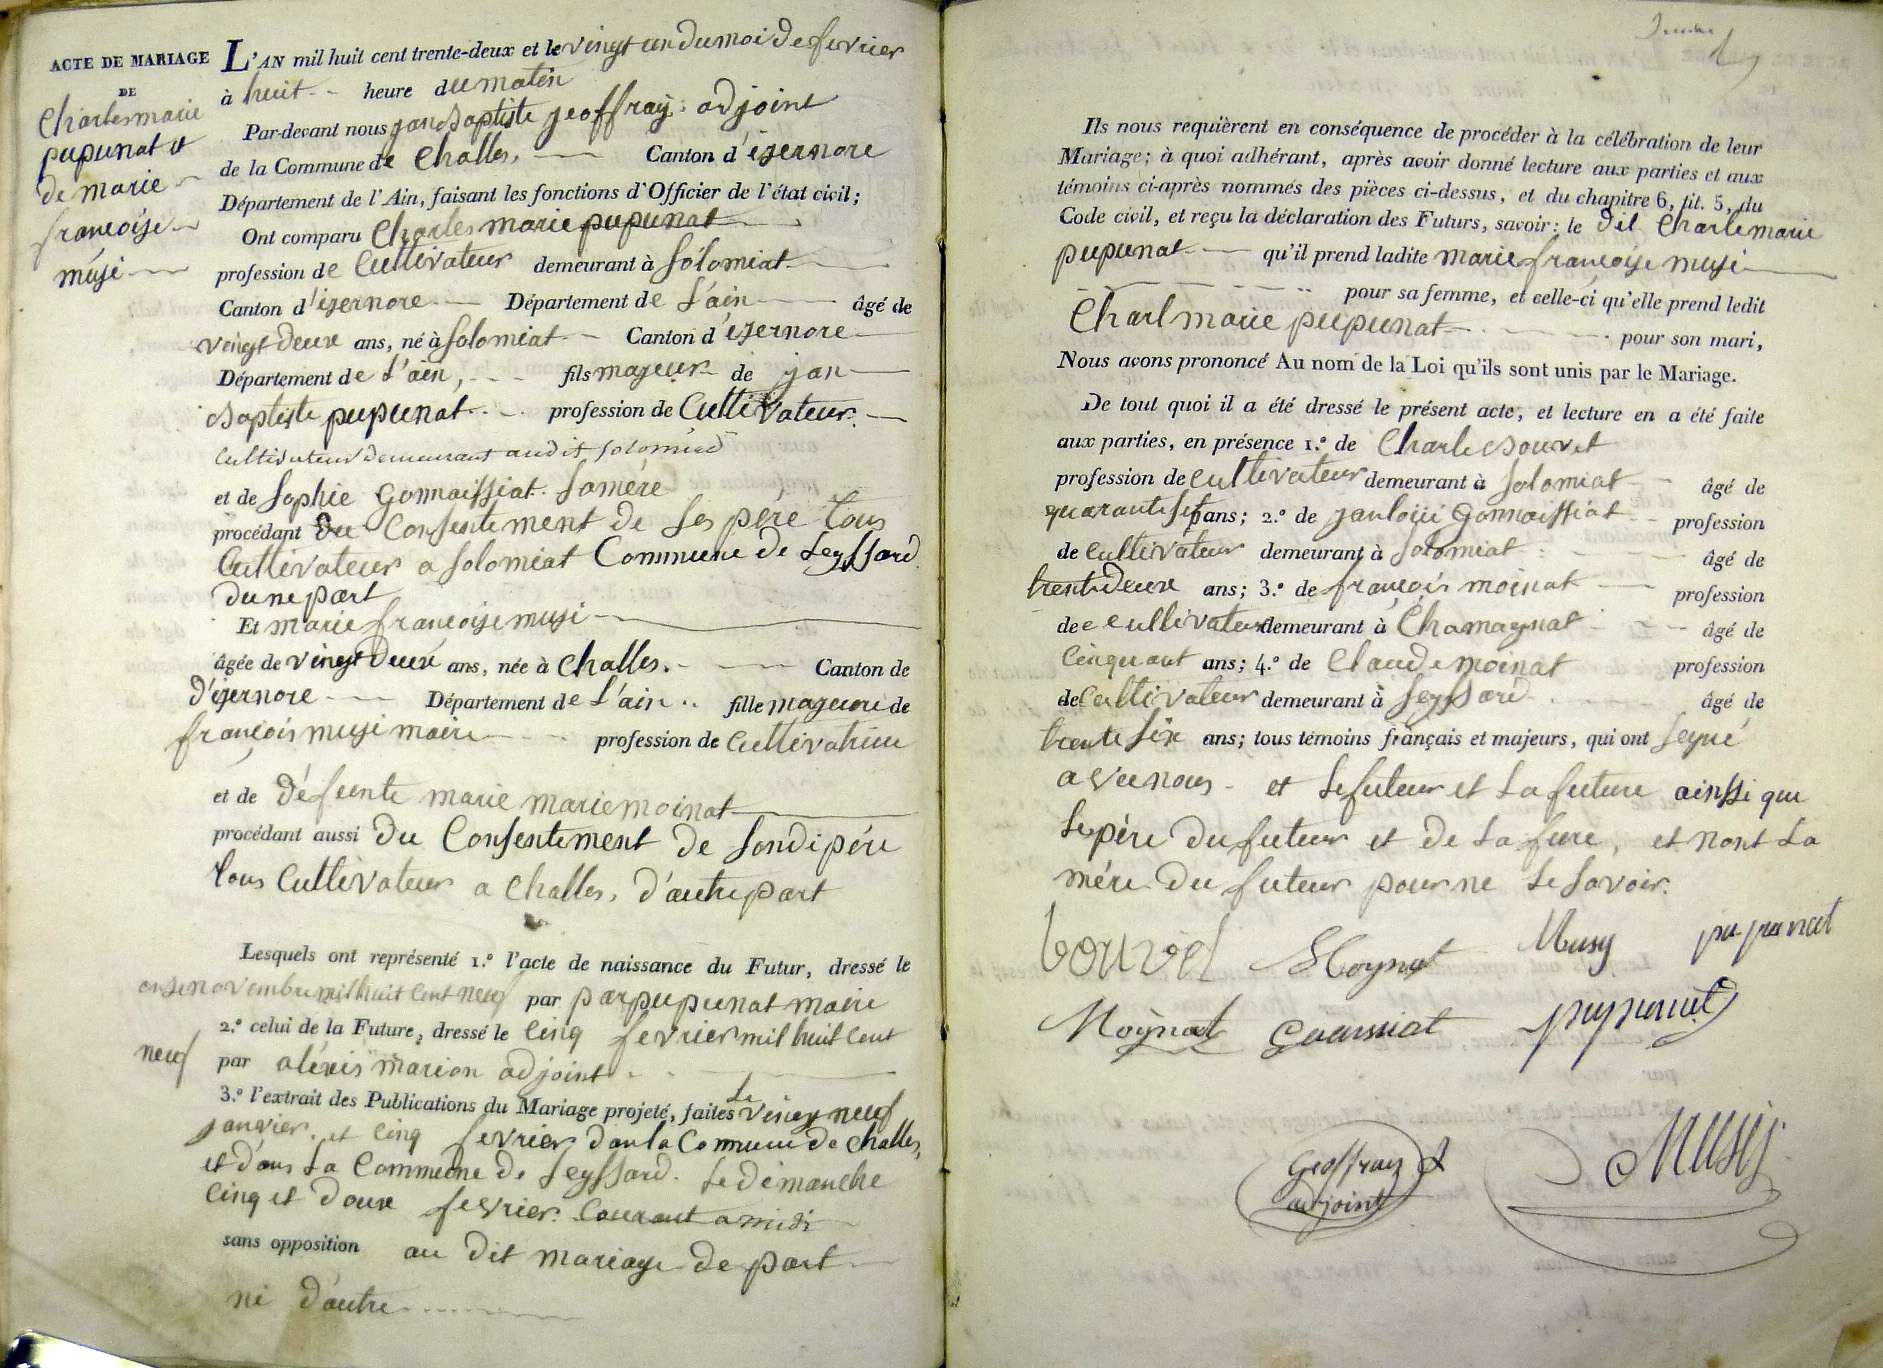 ACTE DE MARIAGE
DE
Charles marie
pupunat et
de marie
francoise
musi
L'AN mil huit cent trente-deux et le vingt un du moi de fevrier
à huit heure du matin
Par-devant nous jan Baptiste geoffray adjoint
de la Commune de Challes, Canton d'izernore
Département de l'Ain, faisant les fonctions d'Officier de l'état civil;
Ont comparu Charles marie pupunat
profession de Cultivateur demeurant à Solomiat
Canton d'izernore Département de L'ain âgé de
vingt deux ans, né à Solomiat Canton d'izernore
Département de L'ain, fils majeur de jan
Baptiste pupunat profession de Cultivateur.
Cultivateur demeurant audit Solomiat
et de Sophie Gonnaissiat. Sa mère
procédant du Consentement de Ses père Tous
Cultivateur a Solomiat Commune de Leyssard
dune part
Et marie francoise musi
âgée de vingt deux ans, née à Challes. Canton de
D'izernore Département de L'ain .. fille majeure de
françois musi maire profession de Cultivateur
et de défunte marie marie moinat
procédant aussi du Consentement de Sondi père
tous Cultivateur a Challes, d'autre part
Lesquels ont représenté 1.° l'acte de naissance du Futur, dressé le
onse novembre mil huit Cent neuf par par pupunat maire
2.° celui de la Future, dressé le Cinq fevrier mil huit Cent
neuf par aléxis marion adjoint
3.° l'extrait des Publications du Mariage projeté, faites Le vingt neuf
janvier. et Cinq fevrier dan la Commune de Challes,
et dans La Commune de Leyssard. Le dimanche
Cinq et douse fevrier. Courant a midi
sans opposition au dit mariage de part
ni d'autre
Ils nous requièrent en conséquence de procéder à la célébration de leur
Mariage; à quoi adhérant, après avoir donné lecture aux parties et aux
témoins ci-après nommés des pièces ci-dessus, et du chapitre 6, tit. 5, du
Code civil, et reçu la déclaration des Futurs, savoir: le dit Charle marie
pupunat qu'il prend ladite marie françoise musi
pour sa femme, et celle-ci qu'elle prend ledit
Charl marie pupunat pour son mari,
Nous avons prononcé Au nom de la Loi qu'ils sont unis par le Mariage.
De tout quoi il a été dressé le présent acte, et lecture en a été faite
aux parties, en présence 1.° de Charle Bouvet
profession de Cultivateur demeurant à Solomiat âgé de
quarante Sept ans; 2.° de jan loüi Gonnaissiat profession
de Cultivateur demeurant à Solomiat âgé de
trente deux ans; 3.° de françois moinat profession
de Cultivateur demeurant à Chamagnat âgé de
Cinquant ans; 4.° de Claude moinat profession
de Cultivateur demeurant à Leyssard âgé de
trente Six ans; tous témoins français et majeurs, qui ont Signé
avec nous et Le futeur et La future ainssi que
Le père du futeur et de La fure, et nont La
mére du futeur pour ne Le Savoir.
bouvet Moynat Musy pupunat
Moÿnat pupunat
Geoffray
adjoint
Musy